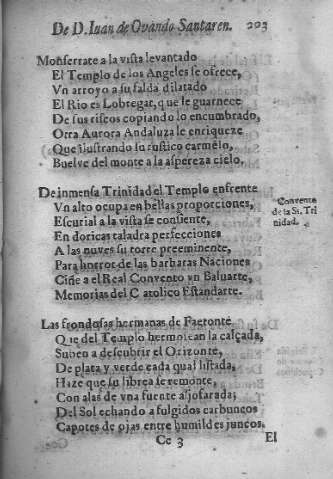 De D. Iuan de Ovando Santaren. 203
Monserrate a la vista levantado
El Templo de los Angeles se ofrece,
Vn arroyo a su falda dilatado
El Rio es Lobregat, que le guarnece
De sus riscos copiando lo encumbrado,
Otra Aurora Andaluza le enriqueze
Que ilustrando su rustico carmelo,
Buelve del monte a la aspereza cielo.
De inmensa Trinidad el Templo enfrente
Vn alto ocupa en bellas proporciones,
Escurial a la vista se consiente,
En doricas taladra perfecciones
A las nuves su torre preeminente,
Para horror de las barbaras Naciones
Ciñe a el Real Convento vn Baluarte,
Memorias del Catolico Estandarte.
Convento
de la SS. Tri
nidad.
Las frondosas hermanas de Faetonte
Que del Templo hermosean la calçada,
Suben a descubrir el Orizonte,
De plata y verde cada qual listada,
Haze que su librea se remonte,
Con alas de vna fuente aljofarada;
Del Sol echando a fulgidos carbuncos
Capotes de ojas entre humildes juncos.
Cc 3 El